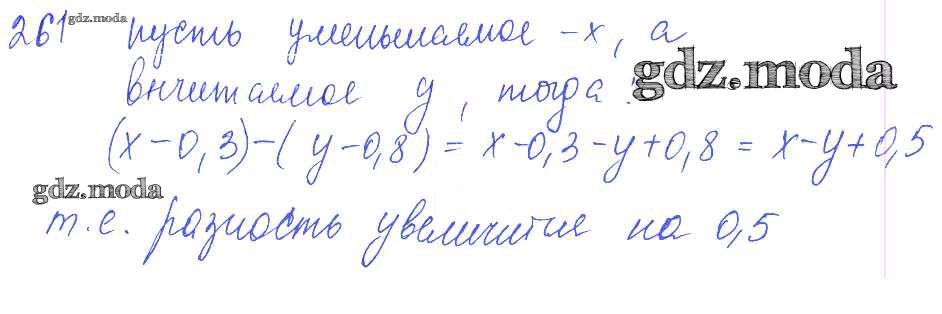 261 gdz.moda пусть уменьшаемое - x, а
вычитаемое y, тогда: gdz.moda
(x-0,3)-(y-0,8) = x-0,3-y+0,8 = x-y+0,5
gdz.moda
т.е. разность увеличится на 0,5